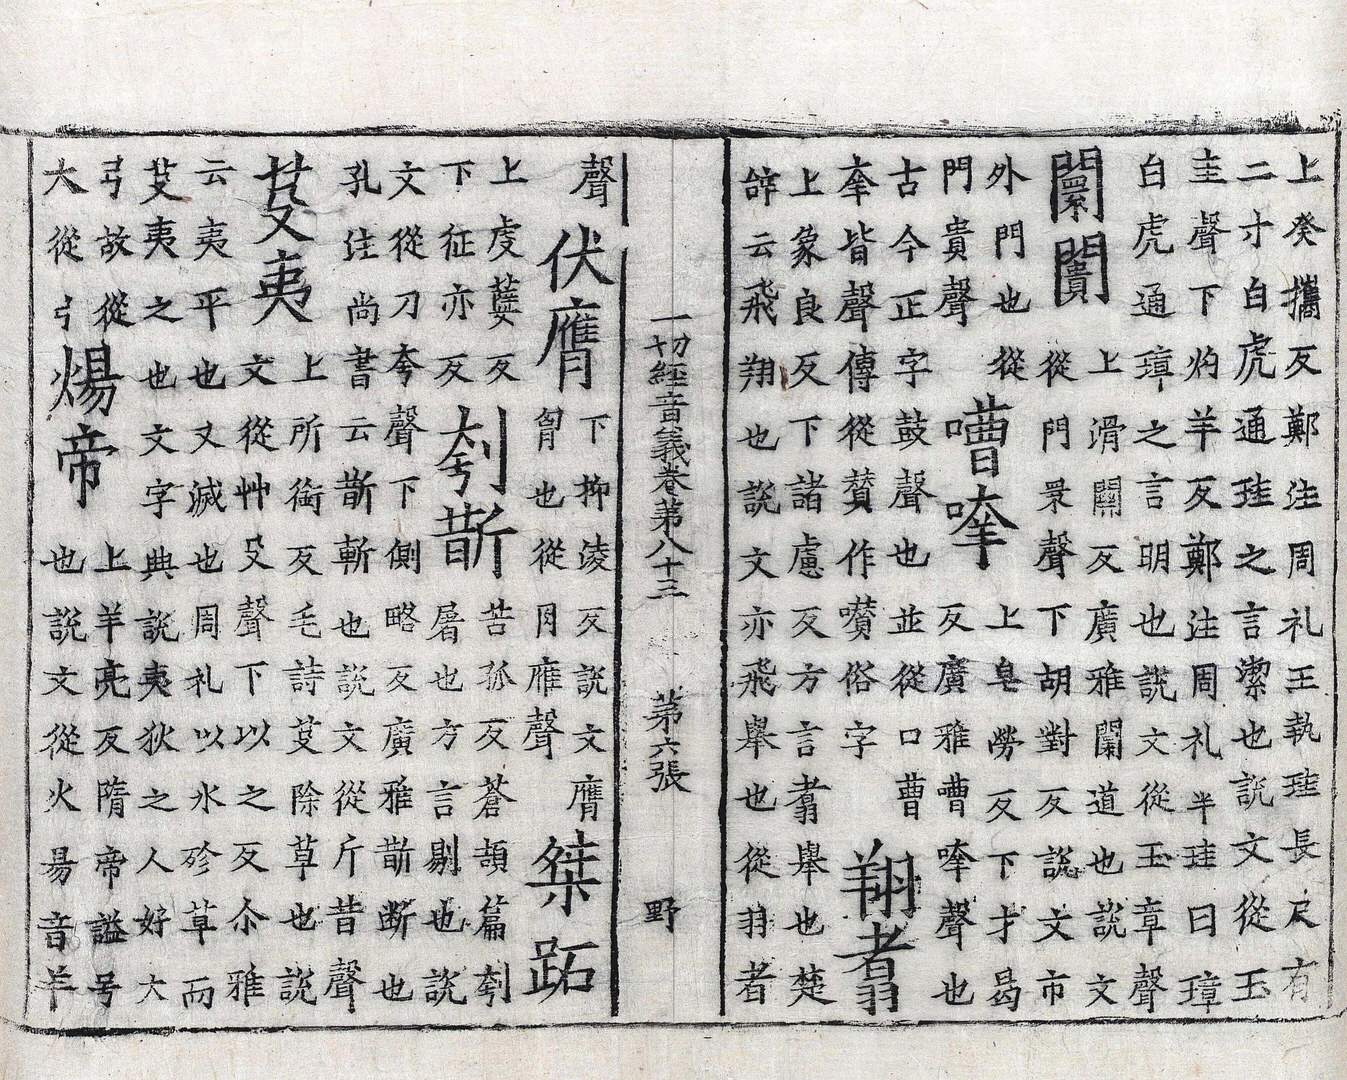 上癸攜反鄭注周礼王執珪長尺有
二寸白虎通珪之言潔也說文從玉
圭聲下灼羊反鄭注周礼半珪曰璋
白虎通璋之言明也說文從玉章聲
闤闠
上滑關反廣雅闤道也說文
從門睘聲下胡對反說文市
外門也從
門貴聲
嘈㗲
上皂勞反下才曷
反廣雅嘈㗲聲也
古今正字鼓聲也並從口曹
㚔皆聲傳從贊作囋俗字
翔翥
上象良反下諸慮反方言翥舉也楚
辝云飛翔也說文亦飛舉也從羽者
一切經音義卷第八十三 第六張 野
聲
伏膺
下抑淩反說文膺
胷也從月䧹聲
桀跖
上虔蘖反
下征亦反
刳斮
苦孤反蒼頡篇刳
屠也方言剔也說
文從刀夸聲下側略反廣雅斮断也
孔注尚書云斮斬也說文從斤昔聲
芟夷
上所銜反毛詩芟除草也說
文從艸殳聲下以之反尒雅
云夷平也又滅也周礼以水殄草而
芟夷之也文字典說夷狄之人好大
弓故從
大從弓
煬帝
上羊亮反隋帝謚号
也說文從火昜音羊